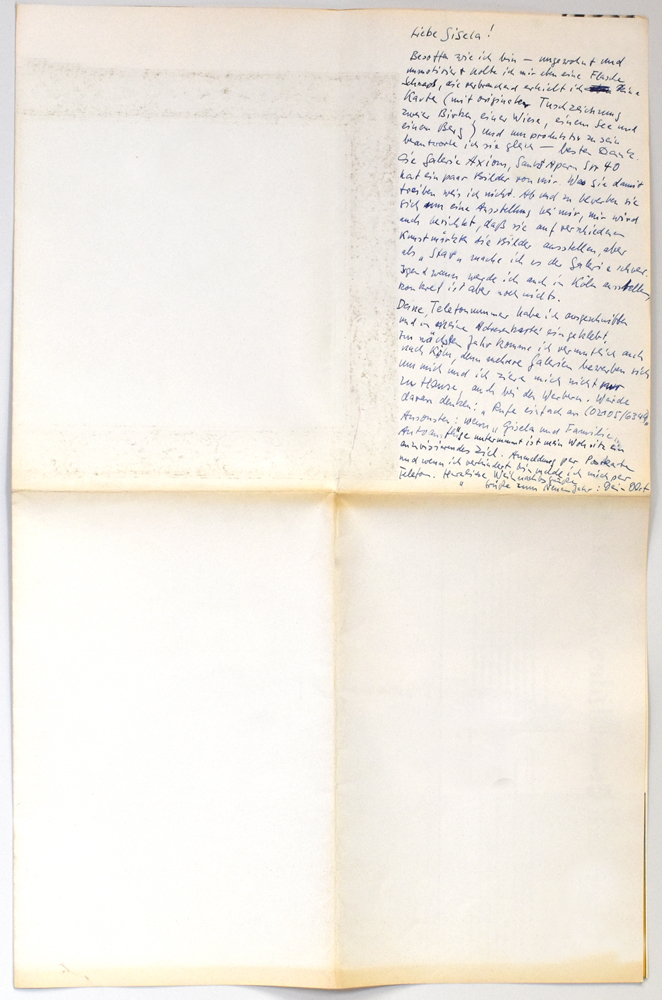 Liebe Gisela!
Besoffen wie ich bin — ungewohnt und
unmotiviert holte ich mir eben eine Flasche
Schnaps, die verbrauchend erhielt ich Deine
Karte (mit origineller Tuschzeichnung
zweier Birken, einer Wiese, einem See und
einem Berg) und um produktiv zu sein
beantworte ich sie gleich — besten Dank.
Die Galerie Axiom, Sankt Apern Str 40
hat ein paar Bilder von mir. Was sie damit
treiben weis ich nicht. Ab und zu bewerben sie
sich um eine Ausstellung bei mir, mir wird
auch berichtet, daß sie auf verschiedenen
Kunstmärkten die Bilder ausstellen, aber
als "Star" mache ich es der Galerie schwer.
Irgendwann werde ich auch in Köln ausstellen,
konkret ist aber noch nichts.
Deine Telefonnummer habe ich ausgeschnitten
und in meine Adressenkartei eingeklebt,
im nächsten Jahr komme ich vermutlich auch
nach Köln, denn mehrere Galerien bewerben sich
um mich und ich ziere mich nicht nur
zu Hause, auch bei den Werbern. Werde
daran denken: "Rufe einfach an (02105/6349)
Ansonsten: wenn "Gisela und Familie"
Autoausflüge unternimmt ist mein Wohnsitz ein
anzuvisierendes Ziel. Anmeldung per Postkarte
und wenn ich verhindert bin melde ich mich per
Telefon. Herzliche Weihnachtsgrüße
" Grüße zum Neuen Jahr: Dein